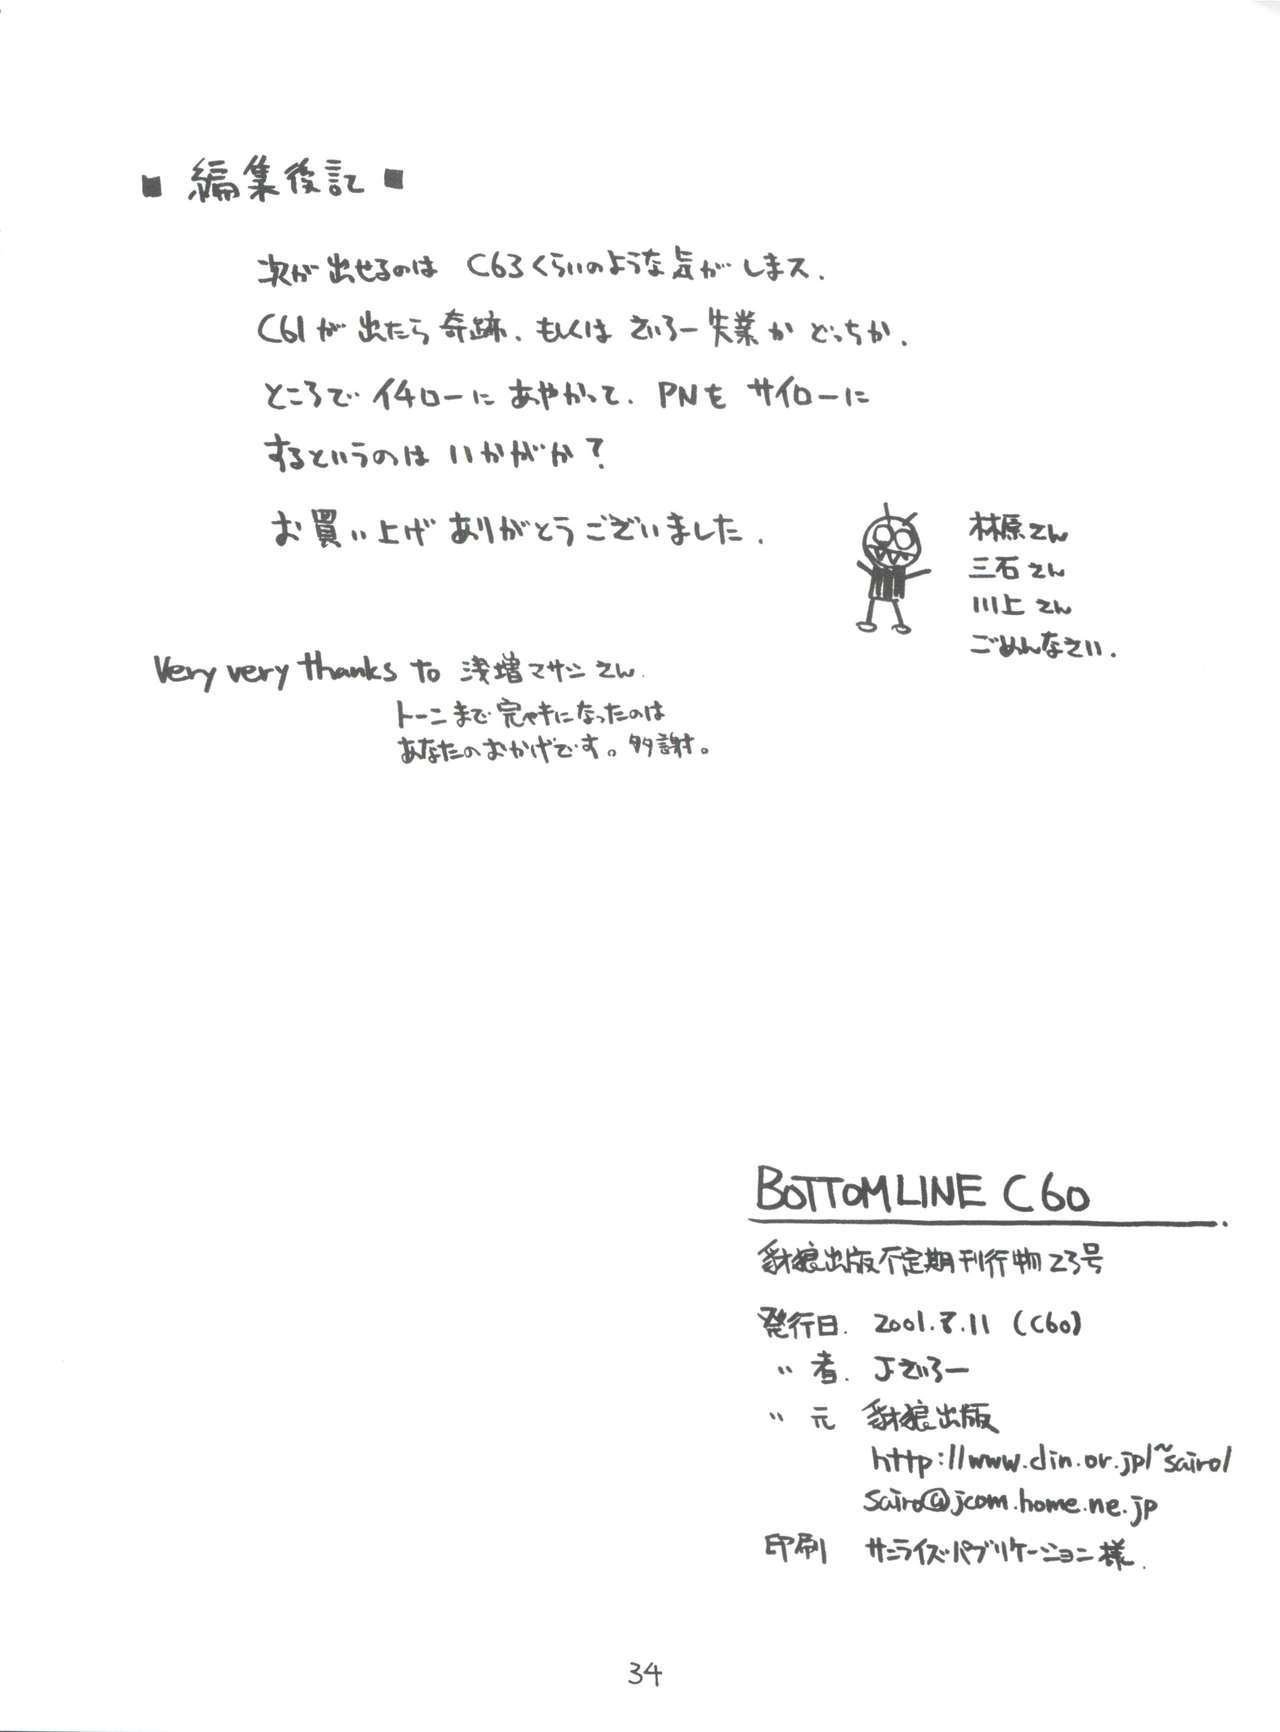 ■ 編集後記 ■
次が出せるのは C63くらいのような気がしまス.
C61が出たら奇跡、もしくは さいろー失業か どっちか.
ところで イチローに あやかって、PNも サイローに
するというのは いかがか?
お買い上げ ありがとうございました.
林原さん
三石さん
川上さん
ごめんなさい.
Very very thanks to 浅増マサシさん.
トーンまで完ペキになったのは
あなたのおかげです。多謝。
BOTTOMLINE C60
豺狼出版不定期刊行物23号
発行日. 2001.8.11 (C60)
〃 者. Jさいろー
〃 元 豺狼出版
http://www.din.or.jp/~sairo/
sairo@jcom.home.ne.jp
印刷 サンライズパブリケーション様.
34